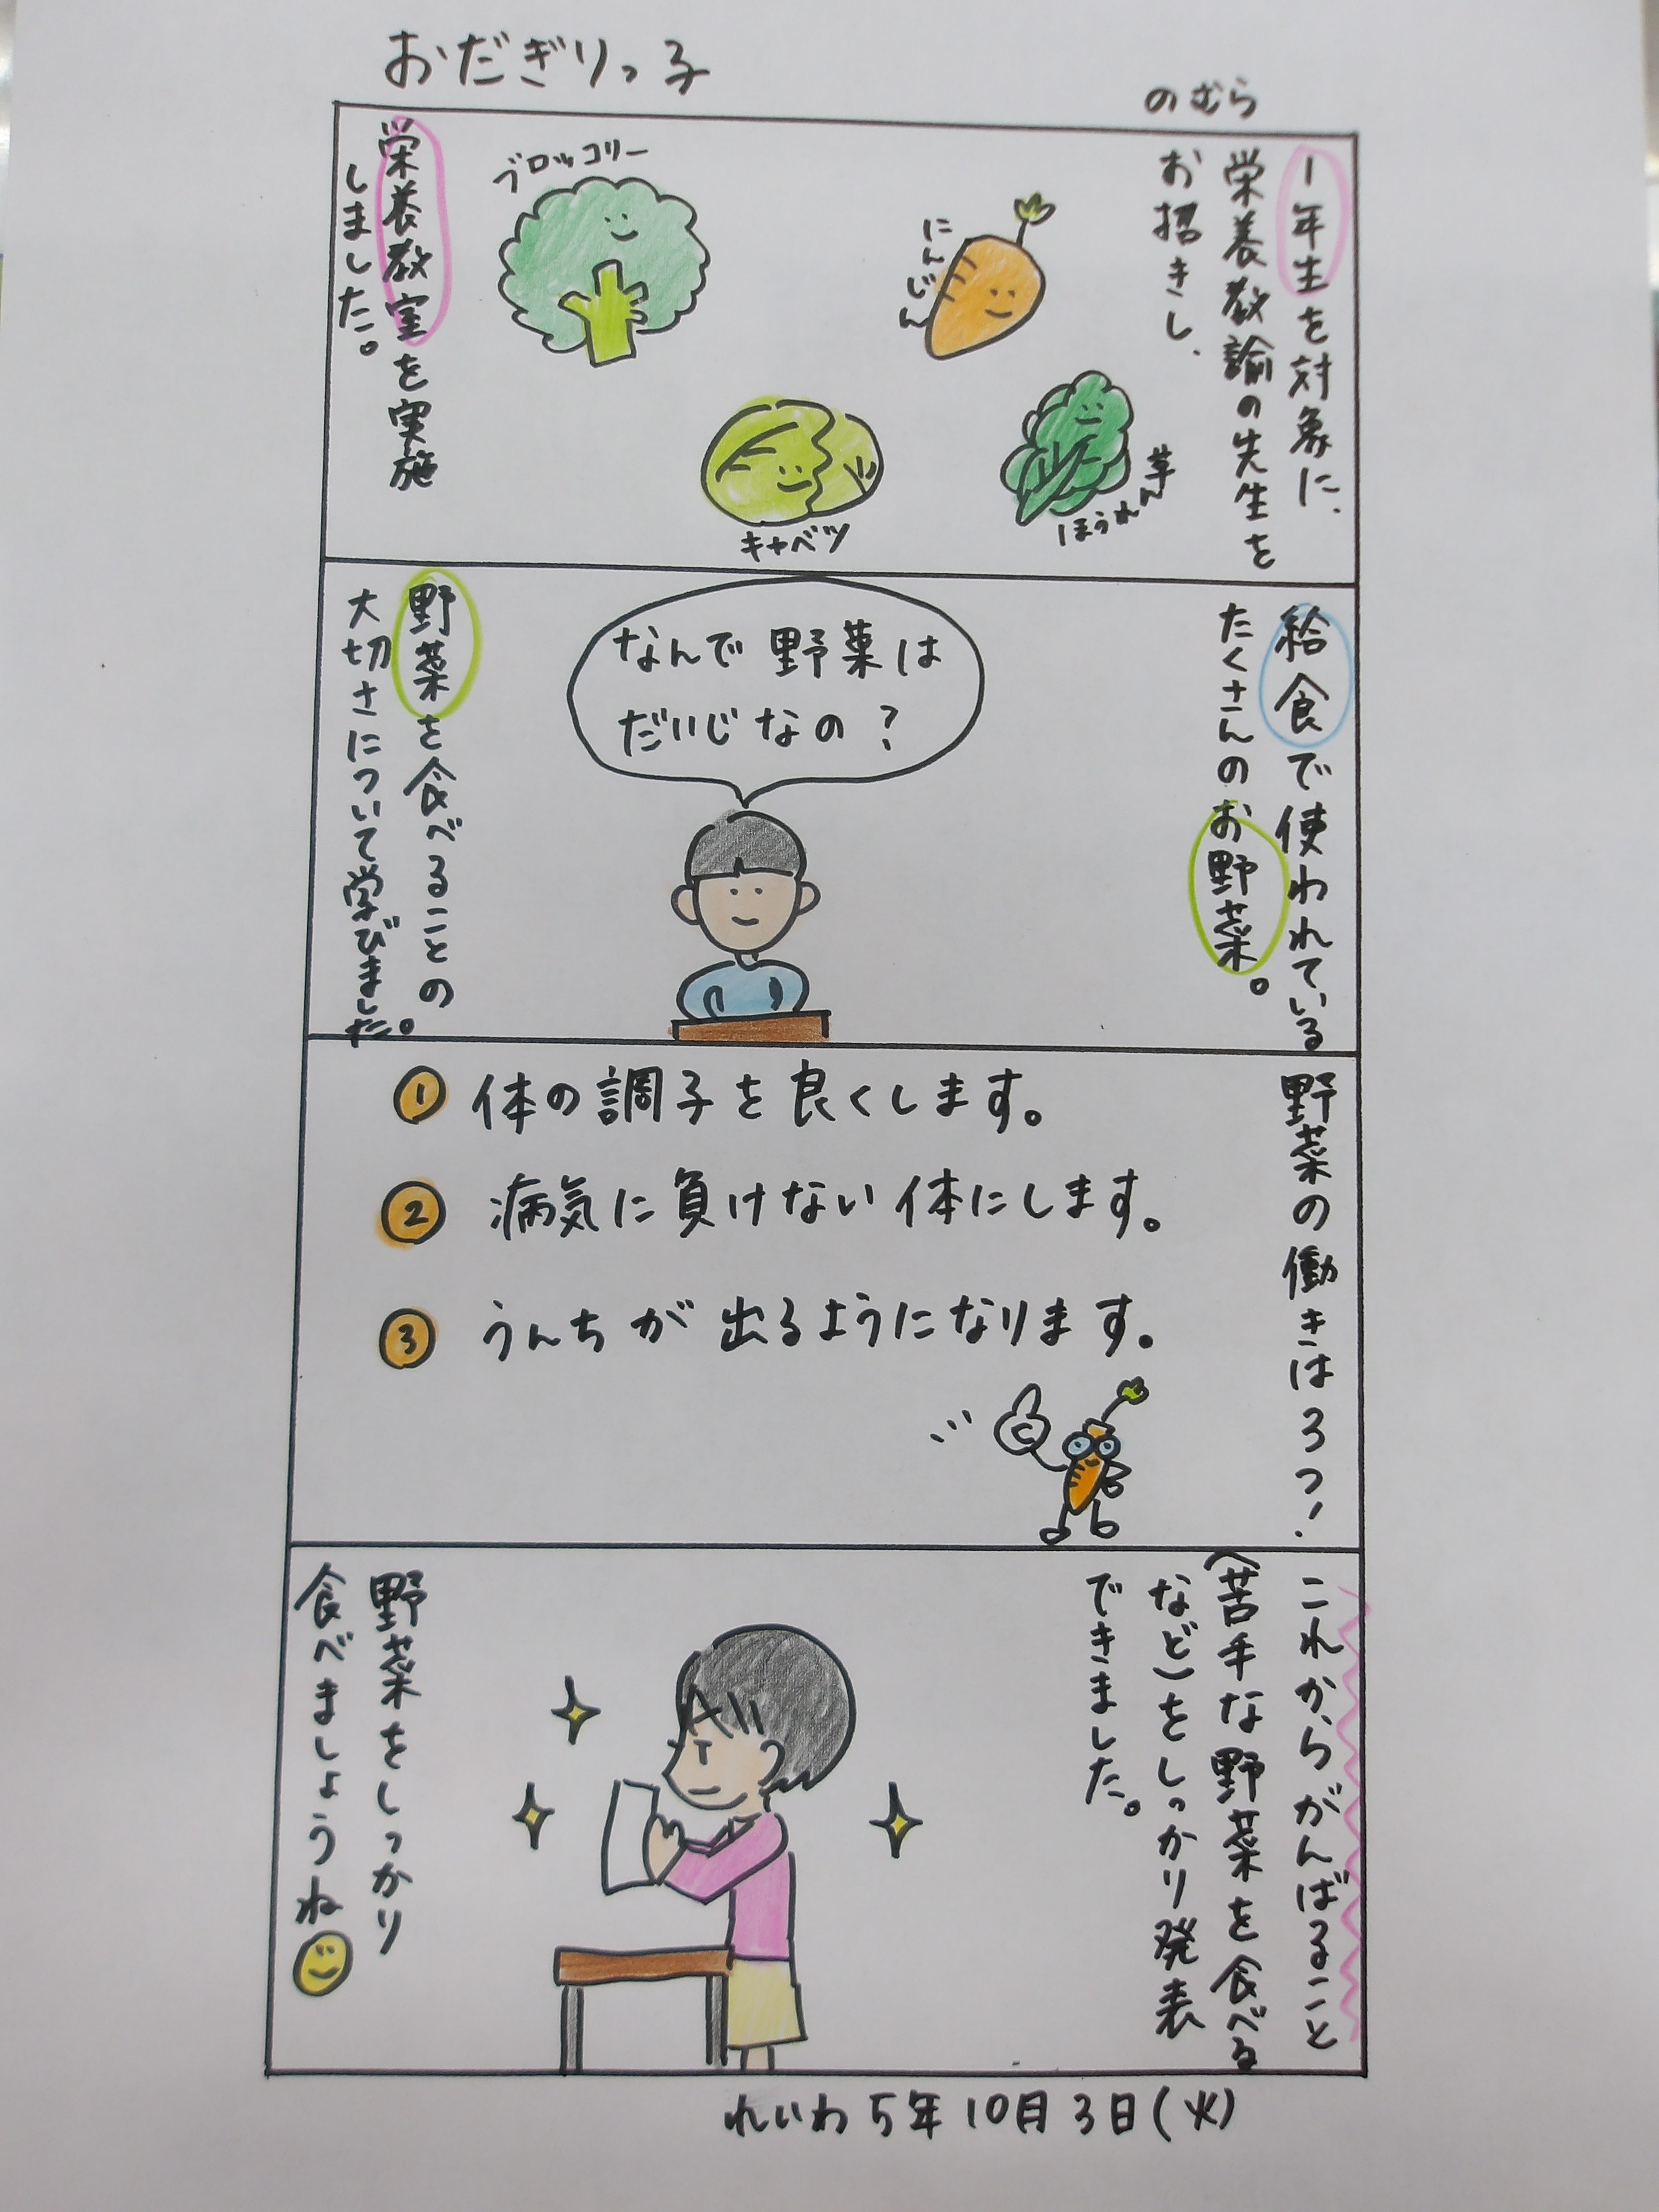 おだぎりっ子
のむら
1年生を対象に、
栄養教諭の先生を
お招きし、
にんじん
ほうれん草
ブロッコリー
キャベツ
栄養教室を実施
しました。
給食で使われている
たくさんのお野菜。
なんで野菜は
だいじなの?
野菜を食べることの
大切さについて学びました。
野菜の働きは3つ!
① 体の調子を良くします。
② 病気に負けない体にします。
③ うんちが出るようになります。
これからがんばること
(苦手な野菜を食べる
など)をしっかり発表
できました。
野菜をしっかり
食べましょうね
れいわ5年10月3日(火)